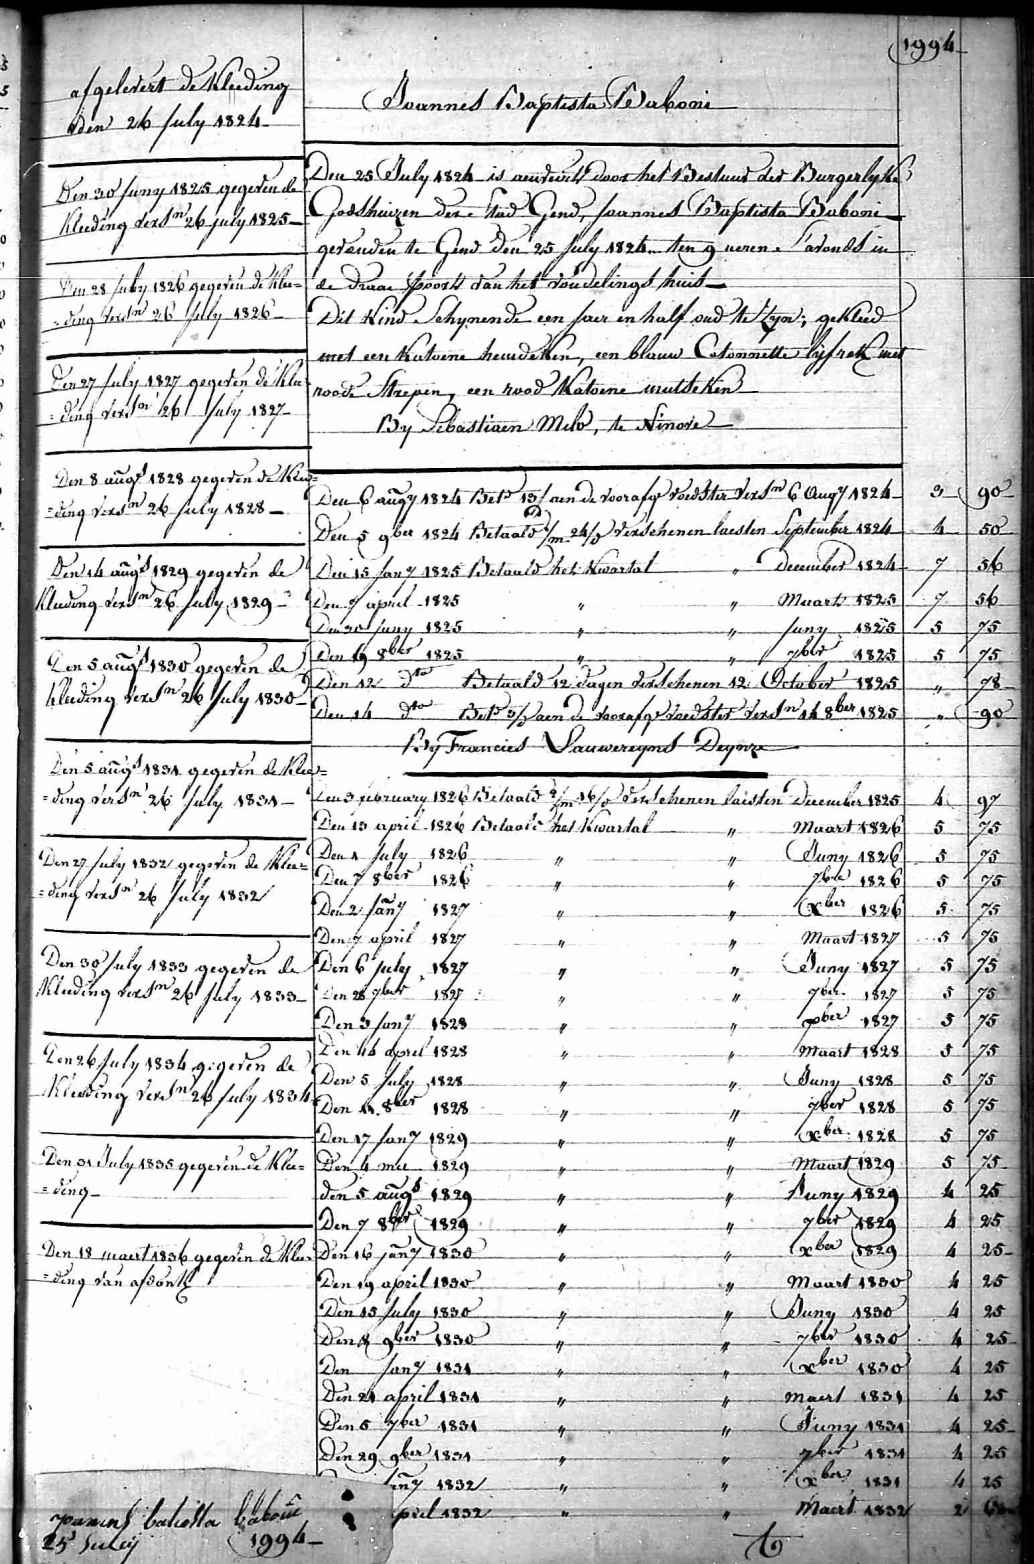 1994
afgelevert de Kleeding
den 26 July 1824
Joannes Baptista Baboni
Den 30 Juny 1825 gegeven de
Kleeding versn 26 july 1825
Den 28 July 1826 gegeven de Klee=
=ding versn 26 July 1826
Den 27 July 1827 gegeven de Klee=
=ding versn 26 July 1827
Den 8 augt 1828 gegeven de Klee=
=ding versn 26 July 1828
Den 14 augt 1829 gegeven de
Kleeding versn 26 July 1829
Den 5 augt 1830 gegeven de
Kleeding versn 26 July 1830
Den 5 augt 1831 gegeven de Klee=
=ding versn 26 July 1831
Den 27 July 1832 gegeven de Klee=
=ding versn 26 July 1832
Den 30 July 1833 gegeven de
Kleeding versn 26 July 1833
Den 26 July 1834 gegeven de
Kleeding versn 26 July 1834
Den 31 July 1835 gegeven de Klee=
=ding
Den 18 maert 1836 gegeven de Klee=
=ding van afdank
Den 25 July 1824 is aenveird door het Bestuur der Burgerlyke
Godshuizen der Stad Gend, Joannes Baptista Baboni
gevonden te Gend den 25 July 1824 ten 9 ueren 's avonds in
de draae poort van het vondelings huis
Dit Kind Schynende een jaer en half oud te Zyn; gekleed
met een Katoene hemdeken, een blauw Cotonnette lyfrok met
roode Strepen, een rood Katoene mutseken
By Sebastiaen Melo, te Ninove
Den 6 augy 1824 Betd 15/ aen de voorafge voedster versn 6 Augy 1824 3 90
Den 5 9ber 1824 Betaald 1/m 24/d verschenen laesten September 1824 4 50
Den 15 Jany 1825 Betaald het Kwartal " December 1824 7 56
Den 7 april 1825 " " Maart 1825 7 56
Den 30 Juny 1825 " " Juny 1825 5 75
Den 19 8ber 1825 " " 7ber 1825 5 75
Den 12 dto Betaald 12 dagen verschenen 12 October 1825 " 78
Den 14 dto Betd aen de voorafge voedster versn 14 8ber 1825 " 90
By Francies Lauwereyns Deynze
Den 3 february 1826 Betaald 2/m 16/d verschenen laesten December 1825 4 97
Den 13 april 1826 Betaald het Kwartal " Maart 1826 5 75
Den 1 July 1826 " " Juny 1826 5 75
Den 7 8ber 1826 " " 7ber 1826 5 75
Den 2 Jany 1827 " " Xber 1826 5 75
Den 7 april 1827 " " Maart 1827 5 75
Den 6 July 1827 " " Juny 1827 5 75
Den 28 7ber 1827 " " 7ber 1827 5 75
Den 3 Jany 1828 " " Xber 1827 5 75
Den 14 april 1828 " " Maart 1828 5 75
Den 5 July 1828 " " Juny 1828 5 75
Den 11 8ber 1828 " " 7ber 1828 5 75
Den 17 Jany 1829 " " Xber 1828 5 75
Den 4 mei 1829 " " Maart 1829 5 75
den 5 augt 1829 " " Juny 1829 4 25
Den 7 8ber 1829 " " 7ber 1829 4 25
Den 16 jany 1830 " " Xber 1829 4 25
Den 19 april 1830 " " Maart 1830 4 25
Den 15 July 1830 " " Juny 1830 4 25
Den 8 9ber 1830 " " 7ber 1830 4 25
Den Jany 1831 " " Xber 1830 4 25
Den 21 april 1831 " " maert 1831 4 25
Den 5 7ber 1831 " " Juny 1831 4 25
Den 29 9ber 1831 " " 7ber 1831 4 25
1832 " " Xber 1831 4 25
1832 " " Maert 1832 2
batiesta baboni
25 July 1994